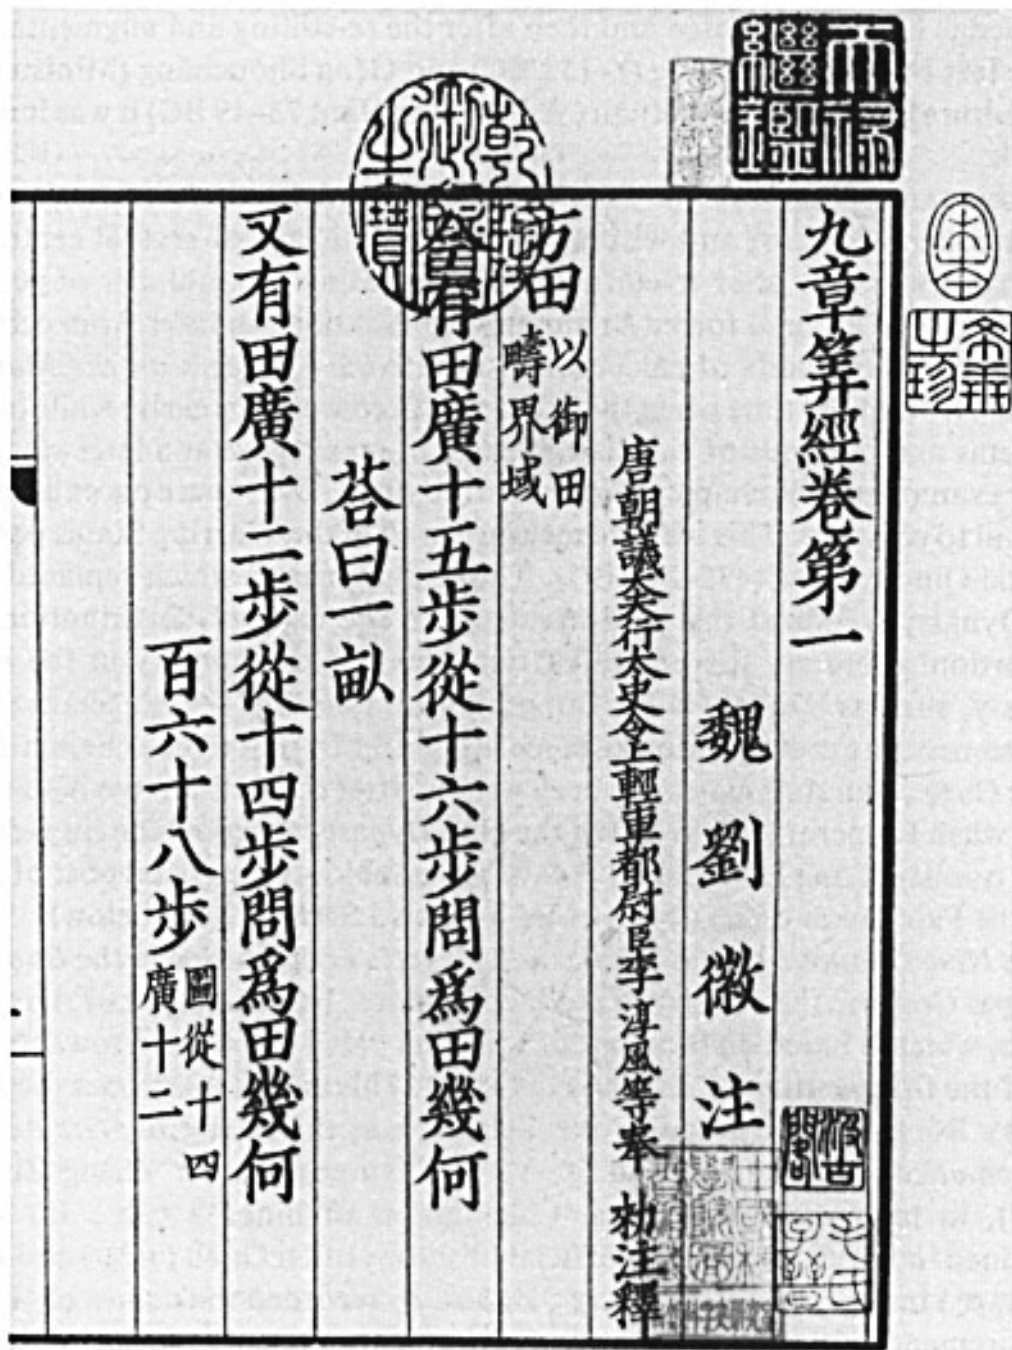 九章筭經卷第一
魏劉徽注
唐朝議大夫行太史令上輕車都尉臣李淳風等奉 勑注釋
方田以御田疇界域
今有田廣十五步從十六步問爲田幾何
荅曰一畝
又有田廣十二步從十四步問爲田幾何
百六十八步圖從十四廣十二
天祿繼鑑
乾隆御覽之寶
汲古閣